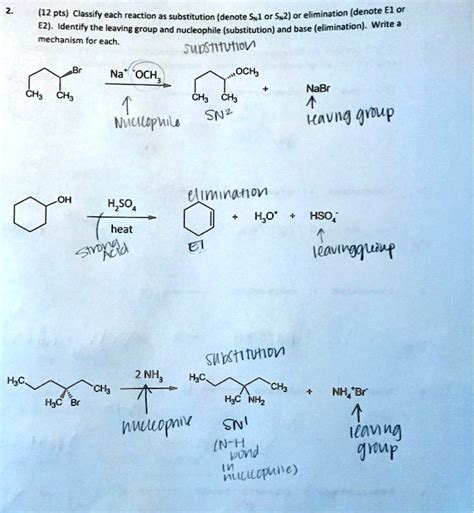 2. (12 pts) Classify each reaction as substitution (denote SN1 or SN2) or elimination (denote E1 or
E2). Identify the leaving group and nucleophile (substitution) and base (elimination). Write a
mechanism for each.
substitution
Br
Na⁺ ⁻OCH₃
OCH₃
+ NaBr
CH₃ CH₃
CH₃ CH₃
Nucleophile
SN2
Leaving group
elimination
OH
H₂SO₄
+ H₃O⁺ + HSO₄⁻
heat
strong
Acid
E1
leavinggroup
substitution
H₃C
CH₃
H₃C Br
2 NH₃
H₃C
CH₃
H₃C NH₂
+ NH₄⁺Br⁻
nucleophile
SN1
(N-H
bond
in
nucleophile)
leaving
group